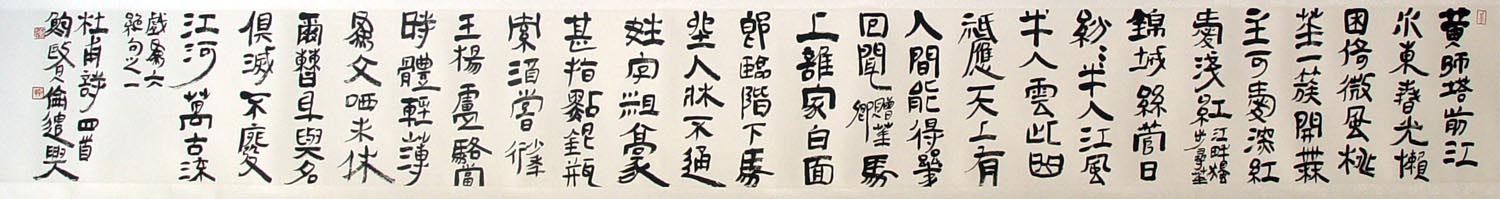 黄師塔前江
水東春光懶
困倚微風桃
華一簇開無
主可愛深紅
愛淺紅 江畔獨步尋華
錦城絲管日
紛〻半入江風
半入雲此曲
祗應天上有
人間能得幾
回聞 贈華卿 馬
上誰家白面
郎臨階下馬
坐人牀不通
姓字粗豪
甚指點銀瓶
索酒嘗 少年行
王楊盧駱當
時體輕薄
為文哂未休
爾曹身與名
俱滅不廢
江河萬古流
戲為六
絕句之一
杜甫詩四首
鮑賢倫遣興